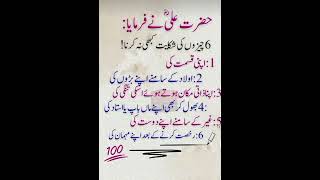 حضرت علیؓ نے فرمایا:
6 چیزوں کی شکایت کبھی نہ کرنا!
1: اپنی قسمت کی
2: اولاد کے سامنے اپنے بڑوں کی
3: اپنا ذاتی مکان ہوتے ہوئے اسکی تنگی کی
4: بھول کر بھی اپنے ماں باپ یا استاد کی
5: غیر کے سامنے اپنے دوست کی
6: رخصت کرنے کے بعد اپنے مہمان کی
100